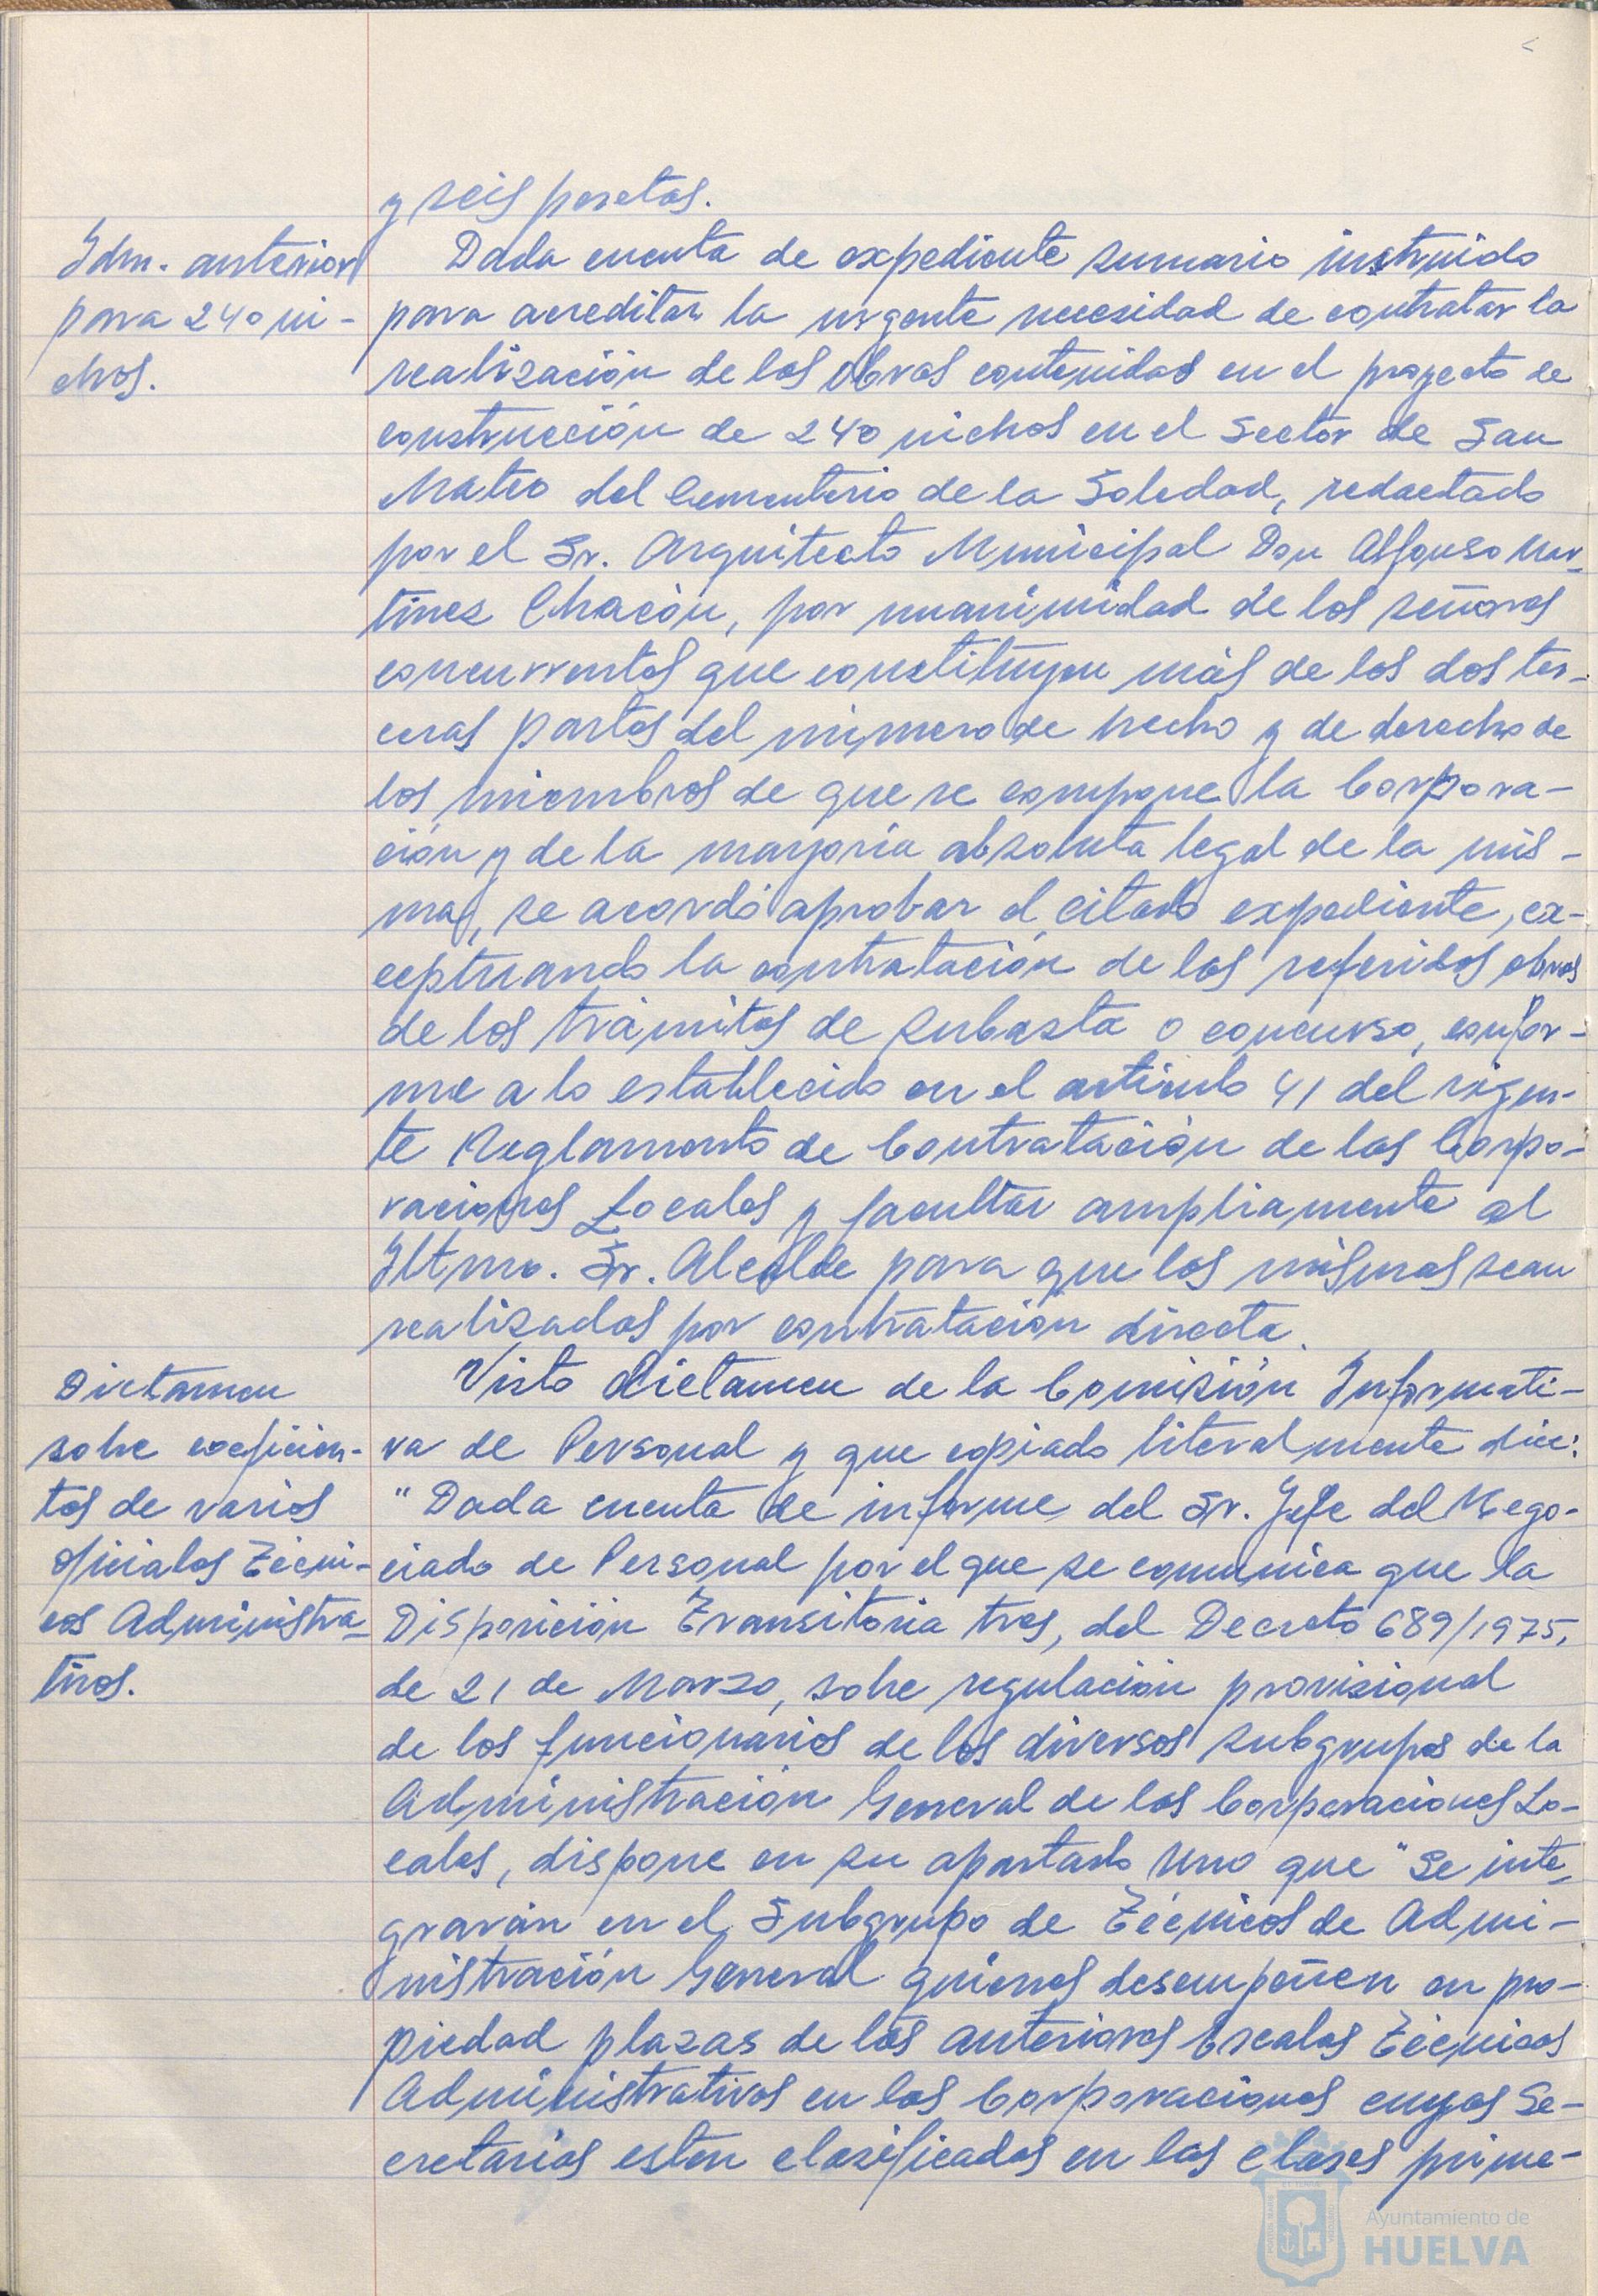 y seis pesetas.
Idm. anterior
para 240 ni-
chos.
Dada cuenta de expediente sumario instruido
para acreditar la urgente necesidad de contratar la
realización de las obras contenidas en el proyecto de
construcción de 240 nichos en el Sector de San
Mateo del Cementerio de la Soledad, redactado
por el Sr. Arquitecto Municipal Don Alfonso Mar-
tinez Chacón, por unanimidad de los señores
concurrentes que constituyen más de las dos ter-
ceras partes del número de hecho y de derecho de
los miembros de que se compone la Corpora-
ción y de la mayoría absoluta legal de la mis-
ma, se acordó aprobar el citado expediente, ex-
ceptuando la contratación de las referidas obras
de los trámites de subasta o concurso, confor-
me a lo establecido en el artículo 41 del vigen-
te Reglamento de Contratación de las Corpo-
raciones Locales y facultar ampliamente al
Iltmo. Sr. Alcalde para que las mismas sean
realizadas por contratación directa.
Dictamen
sobre coeficien-
tes de varios
oficiales Técni-
cos Administra-
tivos.
Visto dictamen de la Comisión Informati-
va de Personal y que copiado literalmente dice:
"Dada cuenta de informe del Sr. Jefe del Nego-
ciado de Personal por el que se comunica que la
Disposición Transitoria tres, del Decreto 689/1975,
de 21 de Marzo, sobre regulación provisional
de los funcionarios de los diversos subgrupos de la
Administración General de las Corporaciones Lo-
cales, dispone en su apartado uno que "Se inte-
grarán en el Subgrupo de Técnicos de Admi-
nistración General quienes desempeñen en pro-
piedad plazas de las anteriores Escalas Técnicas
Administrativas en las Corporaciones cuyas Se-
cretarias esten clasificadas en las clases prime-
Ayuntamiento de
HUELVA